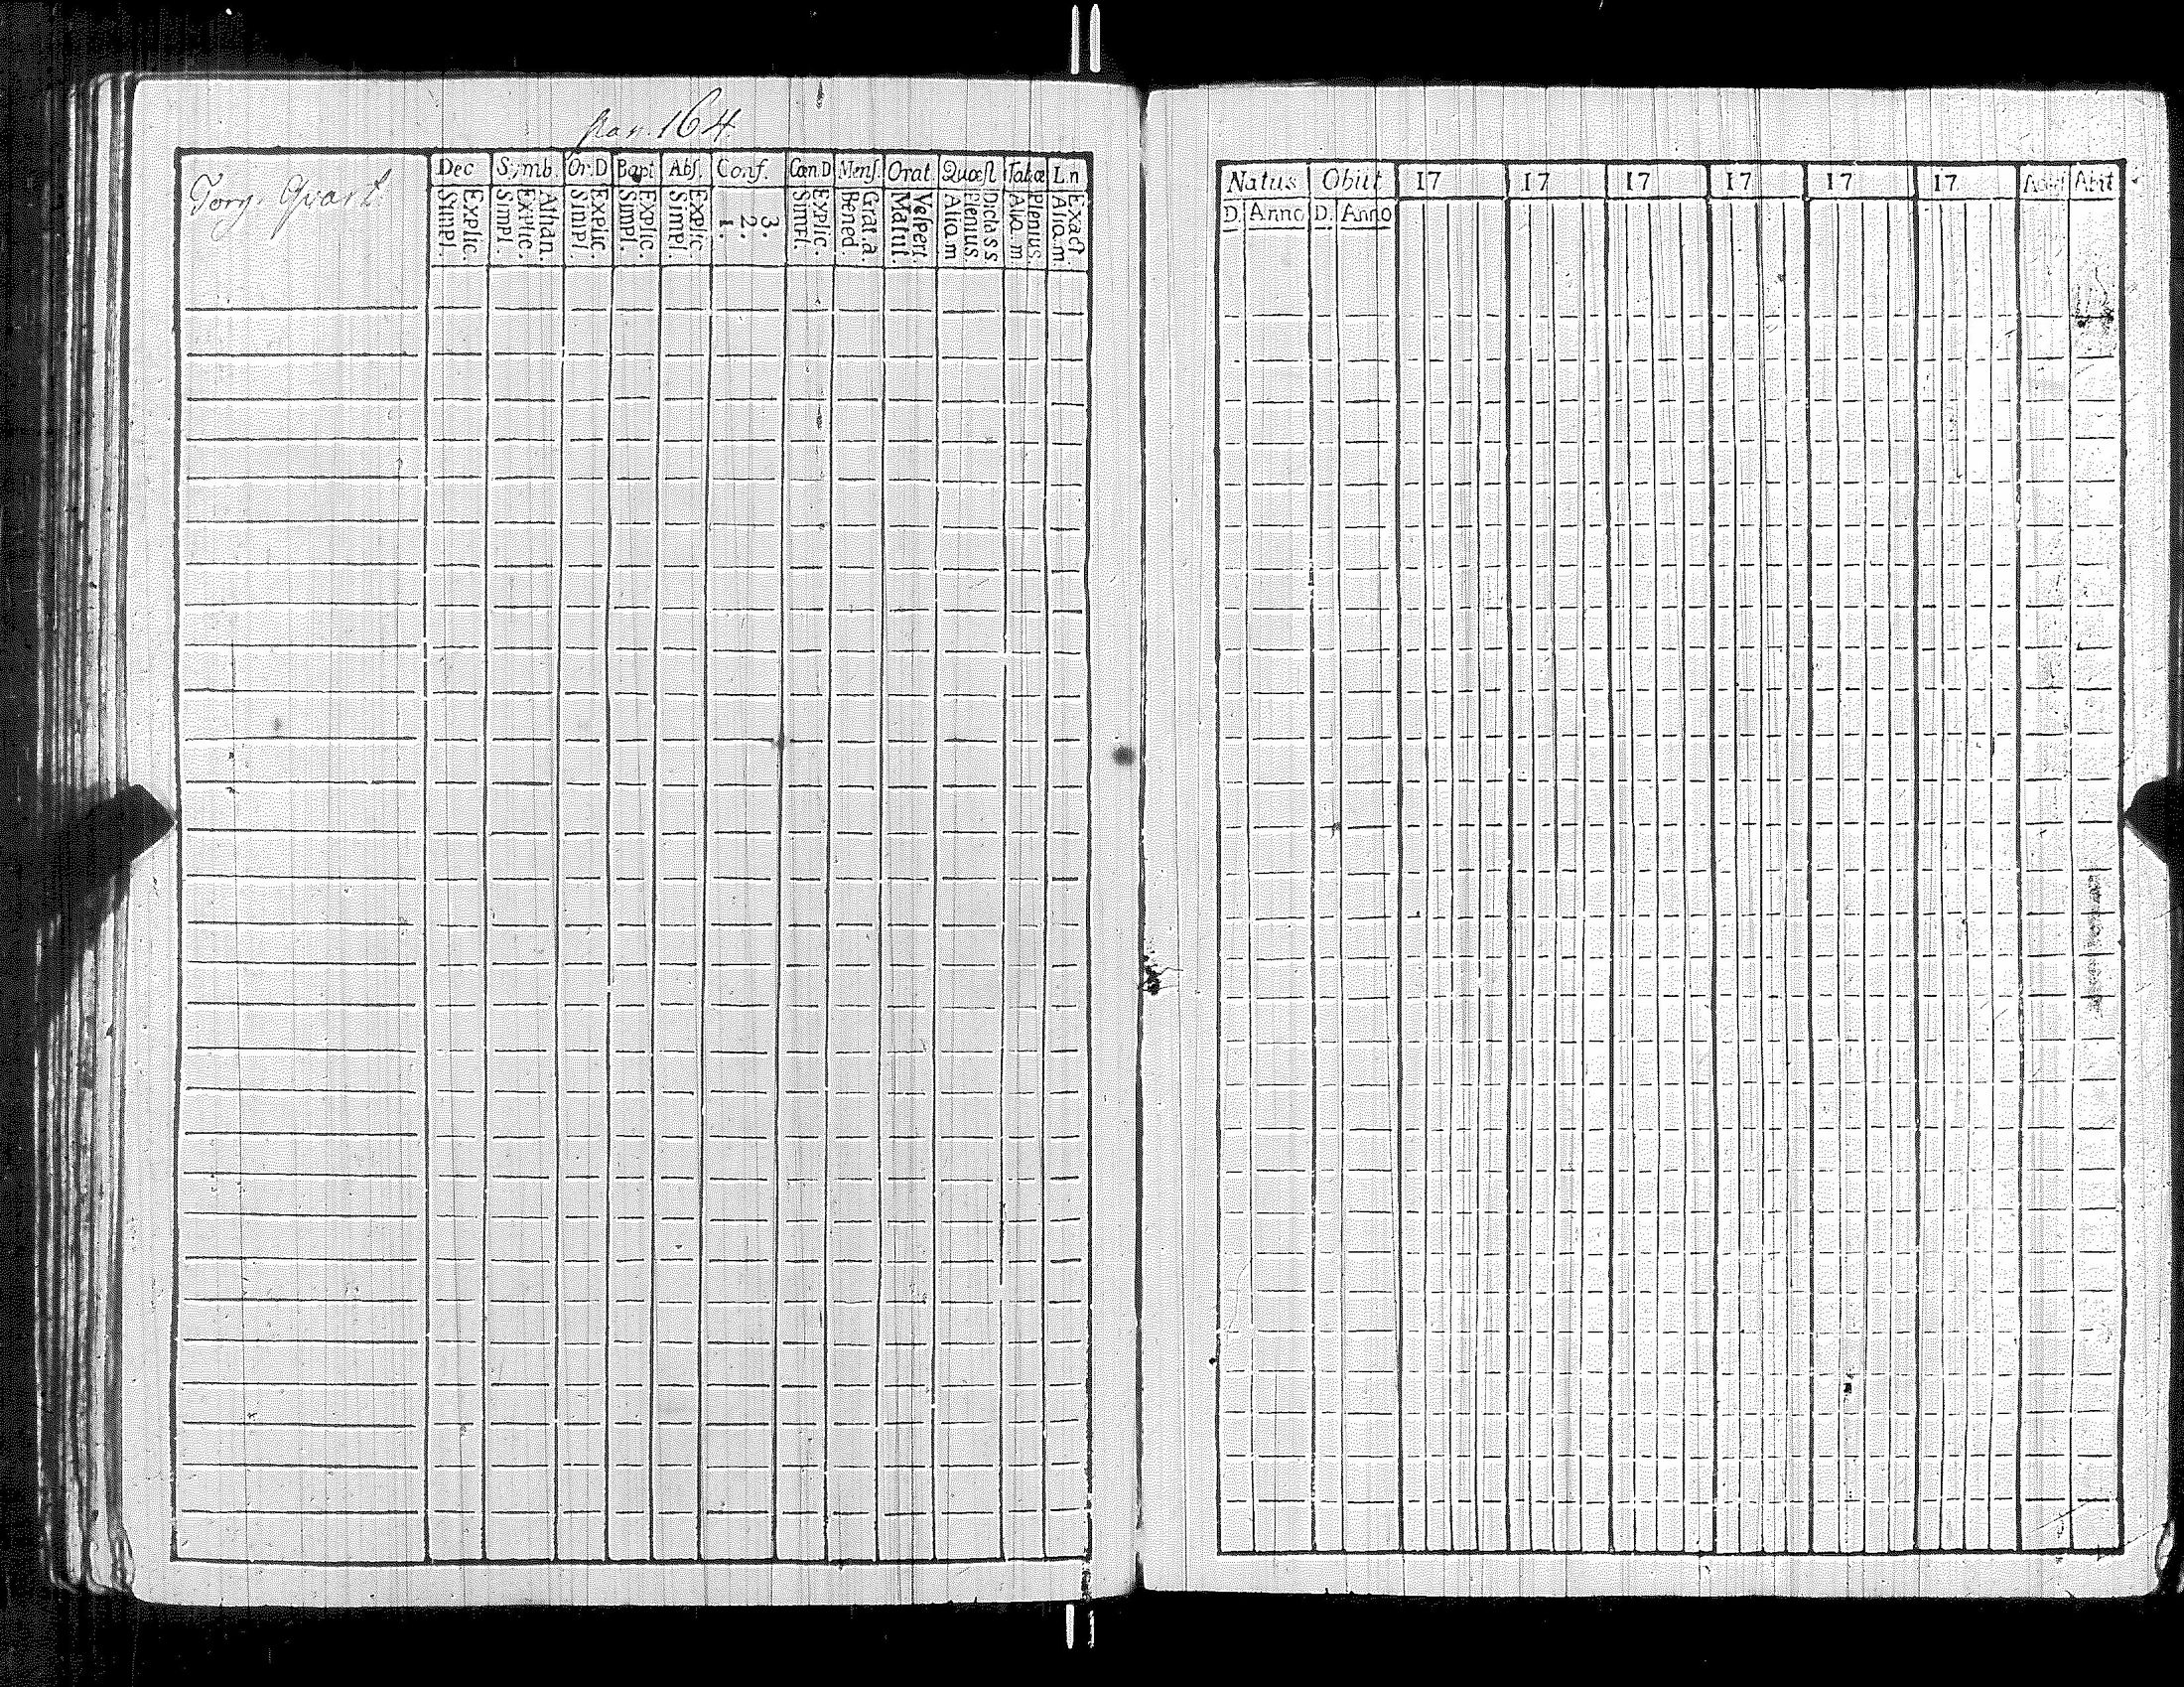 pag. 164
Torg. Qvart
Dec Symb. Or.D Bapt Abs. Conf. Cœn.D Mens. Orat. Quæst Tabæ L.n
Simpl. Explic. Simpl. Explic. Athan. Simpl. Explic. Simpl. Explic. Simpl. Explic. 1. 2. 3. Simpl. Explic. Bened. Grat.a. Matut. Vespert. Aliq.m Plenius. Dicta ss Aliq.m Plenius. Aliq.m. Exact.
Natus Obiit 17 17 17 17 17 17 Abiit
D. Anno D. Anno